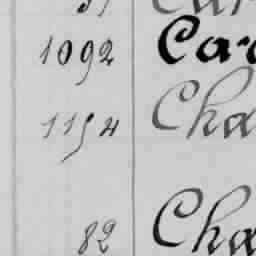 1092 Car
1154 Cha
82 Cha